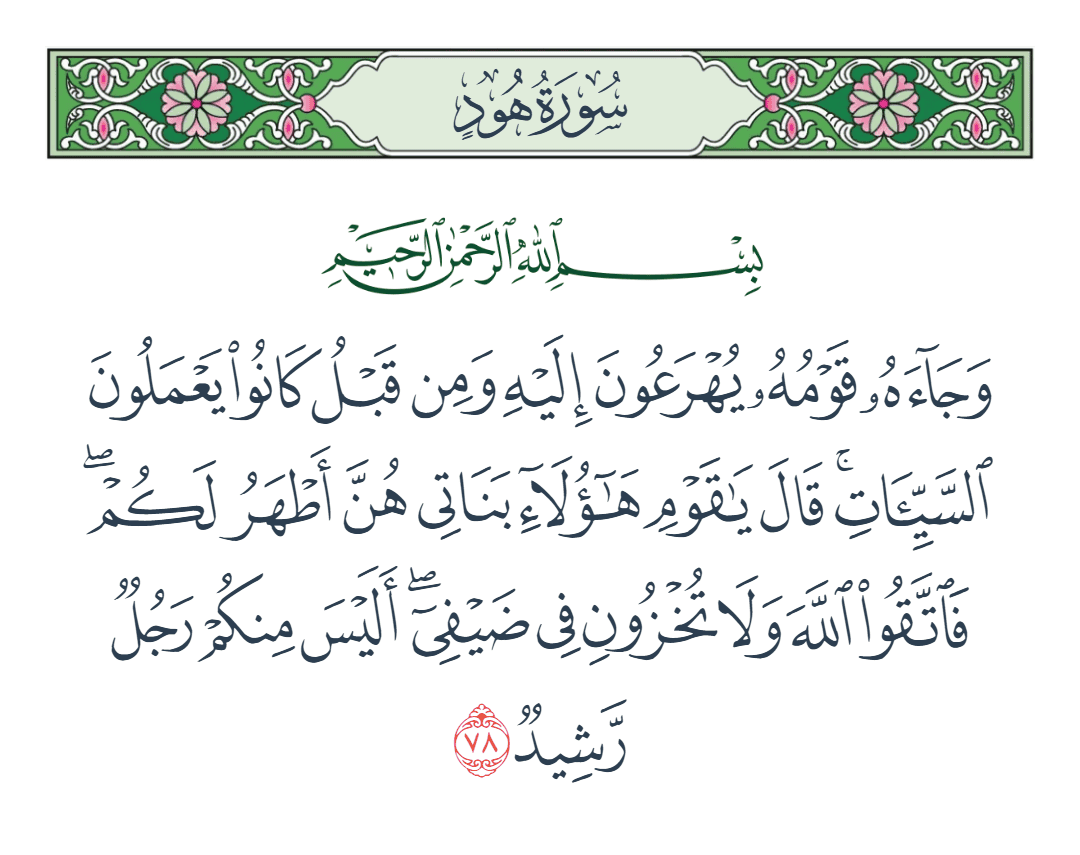 سُورَةُ هُودٍ
بِسْمِ ٱللَّهِ ٱلرَّحْمَٰنِ ٱلرَّحِيمِ
وَجَآءَهُۥ قَوْمُهُۥ يُهْرَعُونَ إِلَيْهِ وَمِن قَبْلُ كَانُوا۟ يَعْمَلُونَ
ٱلسَّيِّـَٔاتِ ۚ قَالَ يَـٰقَوْمِ هَـٰٓؤُلَآءِ بَنَاتِى هُنَّ أَطْهَرُ لَكُمْ ۖ
فَٱتَّقُوا۟ ٱللَّهَ وَلَا تُخْزُونِ فِى ضَيْفِىٓ ۖ أَلَيْسَ مِنكُمْ رَجُلٌ
رَّشِيدٌ ٧٨